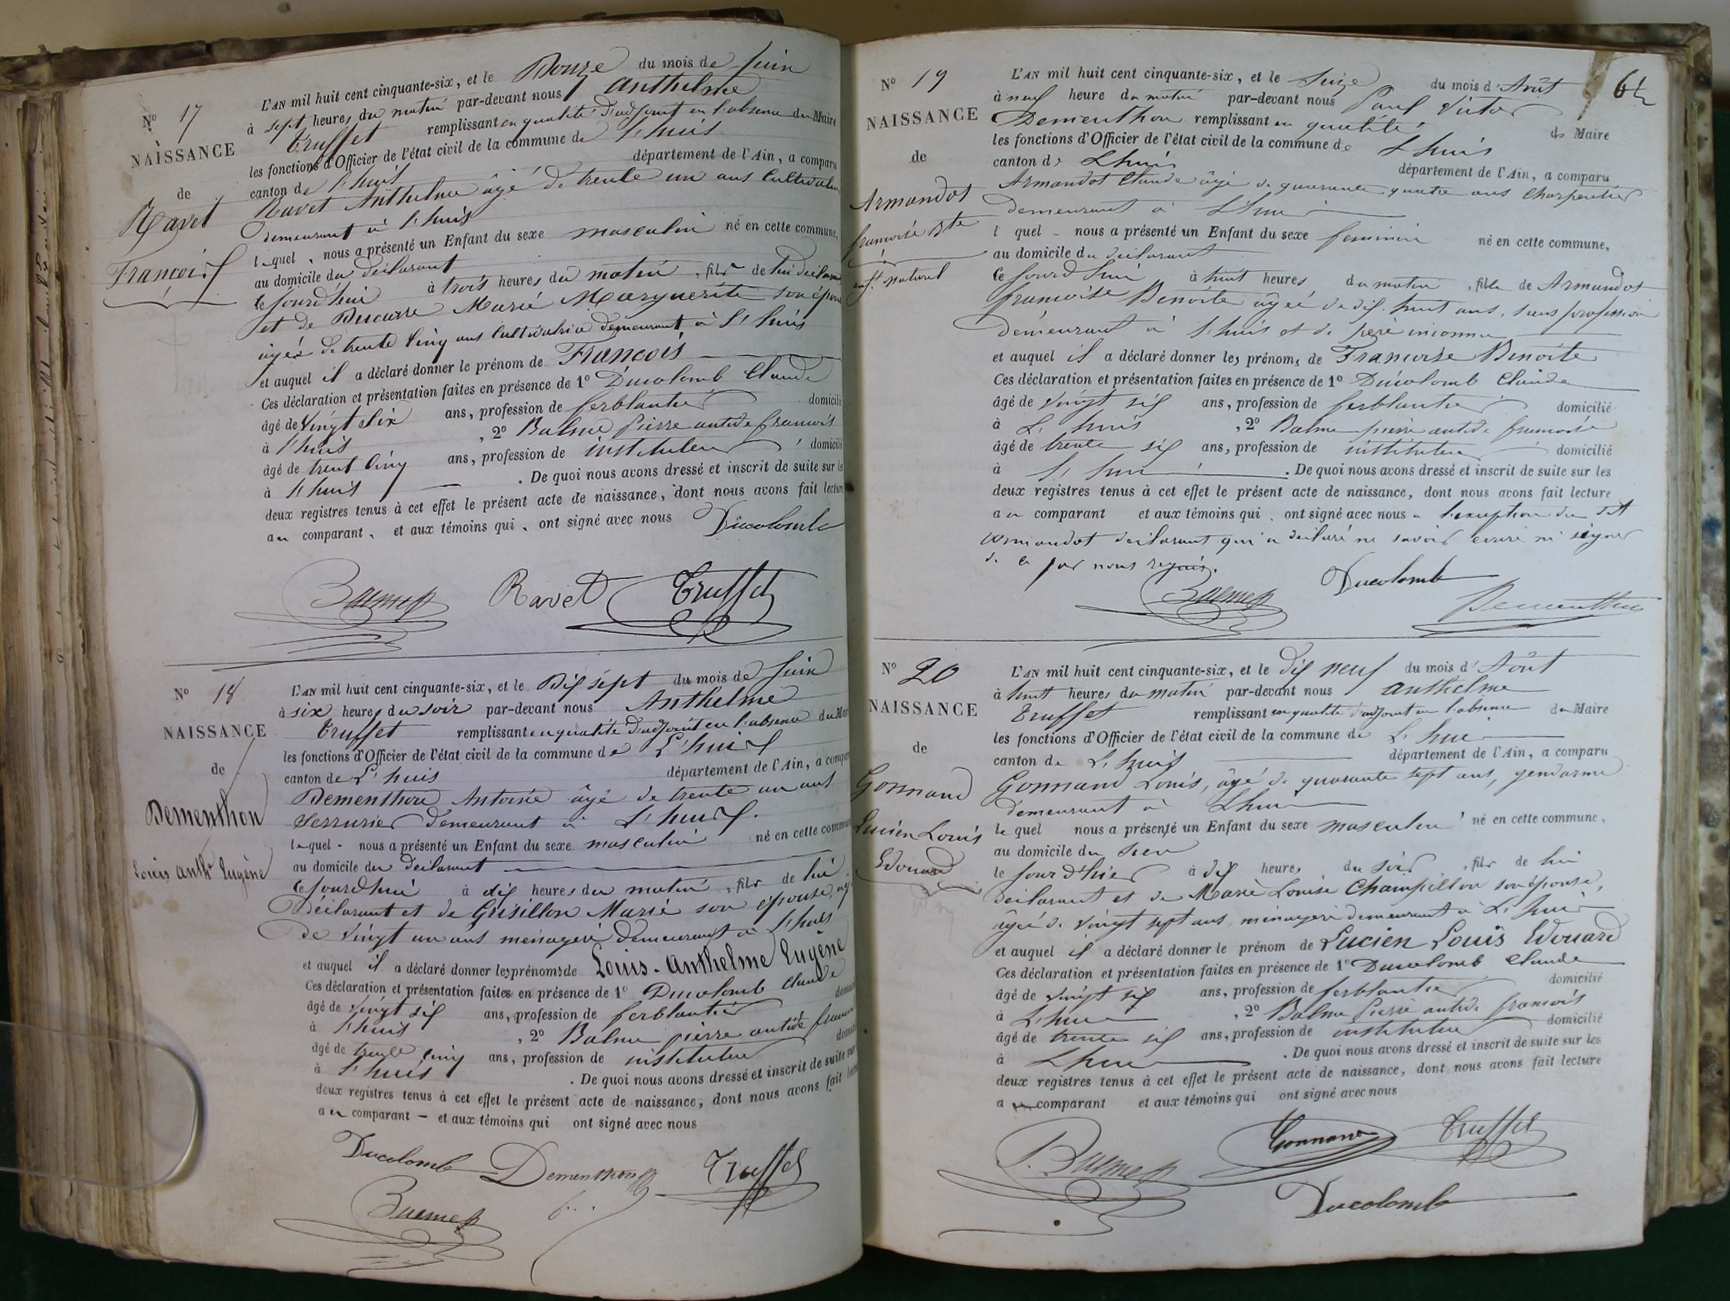 N° 17
NAISSANCE
de
Ravet
François
L'AN mil huit cent cinquante-six, et le Douze du mois de Juin
à sept heures du matin par-devant nous Anthelme
Truffet remplissant en qualité d'adjoint en l'absence du Maire
les fonctions d'Officier de l'état civil de la commune de L'huis
canton de L'huis département de l'Ain, a comparu
Ravet Anthelme âgé de trente un ans Cultivateur
demeurant à L'huis
lequel nous a présenté un Enfant du sexe masculin né en cette commune,
au domicile du déclarant
ce jourd'hui à trois heures du matin, fils de lui déclarant
et de Ducarre Marie Marguerite son épouse
âgée de trente cinq ans Cultivatrice demeurant à L'huis
et auquel il a déclaré donner le prénom de François
Ces déclaration et présentation faites en présence de 1° Ducolomb Claude
âgé de vingt six ans, profession de ferblantier domicilié
à L'huis, 2° Balme pierre antide françois
âgé de trent cinq ans, profession de instituteur domicilié
à L'huis. De quoi nous avons dressé et inscrit de suite sur les
deux registres tenus à cet effet le présent acte de naissance, dont nous avons fait lecture
au comparant, et aux témoins qui, ont signé avec nous Ducolomb
Balme Ravet Truffet
N° 18
NAISSANCE
de
Dementhon
Louis Anthe Eugène
L'AN mil huit cent cinquante-six, et le Dix sept du mois de Juin
à six heures du soir par-devant nous Anthelme
Truffet remplissant en qualité d'adjoint en l'absence du Maire
les fonctions d'Officier de l'état civil de la commune de L'huis
canton de L'huis département de l'Ain, a comparu
Dementhon Antoine âgé de trente un ans
Serrurier demeurant à L'huis.
lequel nous a présenté un Enfant du sexe masculin né en cette commune
au domicile du déclarant
ce jourd'hui à dix heures du matin, fils de lui
Déclarant et de Grisillon Marie son épouse, âgée
de vingt un ans ménagère demeurant à L'huis
et auquel il a déclaré donner les prénoms de Louis-Anthelme Eugène
Ces déclaration et présentation faites en présence de 1° Ducolomb Claude
âgé de vingt six ans, profession de ferblantier
à L'huis, 2° Balme pierre antide françois
âgé de trente cinq ans, profession de instituteur
à L'huis. De quoi nous avons dressé et inscrit de suite sur
deux registres tenus à cet effet le présent acte de naissance, dont nous avons fait lecture
au comparant - et aux témoins qui ont signé avec nous
Ducolomb Dementhon Truffet
Balme
6
N° 19
NAISSANCE
de
Armandot
françoise Bte
enft naturel
L'AN mil huit cent cinquante-six, et le Seize du mois d'Août
à neuf heure du matin par-devant nous Paul Victor
Dementhon remplissant en qualité de Maire
les fonctions d'Officier de l'état civil de la commune de L'huis
canton de L'huis département de l'Ain, a comparu
Armandot Claude âgé de quarante quatre ans Charpentier
demeurant à L'huis
lequel nous a présenté un Enfant du sexe feminin né en cette commune,
au domicile du déclarant
ce jourd'hui à huit heures du matin, fille de Armandot
françoise Benoite agée de dix huit ans, sans profession
demeurant à L'huis et de père inconnu
et auquel il a déclaré donner les prénoms de Françoise Benoite
Ces déclaration et présentation faites en présence de 1° Ducolomb Claude
âgé de vingt six ans, profession de ferblantier domicilié
à L'huis, 2° Balme pierre antide françois
âgé de trente six ans, profession de instituteur domicilié
à L'huis. De quoi nous avons dressé et inscrit de suite sur les
deux registres tenus à cet effet le présent acte de naissance, dont nous avons fait lecture
au comparant et aux témoins qui ont signé avec nous à l'exception du dit
armandot déclarant qui a déclaré ne savoir écrire ni signer
de ce par nous requis.
Balme Ducolomb
Dementhon
N° 20
NAISSANCE
de
Gonnand
Lucien Louis
Edouard
L'AN mil huit cent cinquante-six, et le dix neuf du mois d'Août
à huit heures du matin par-devant nous anthelme
Truffet remplissant en qualité d'adjoint en l'absence du Maire
les fonctions d'Officier de l'état civil de la commune de L'huis
canton de L'huis département de l'Ain, a comparu
Gonnand Louis, âgé de quarante sept ans, gendarme
demeurant à L'huis
lequel nous a présenté un Enfant du sexe masculin né en cette commune,
au domicile du sien
le jour d'hier à dix heures du soir, fils de lui
déclarant et de Marie Louise Champillon son épouse,
âgée de vingt sept ans, ménagère demeurant à L'huis
et auquel il a déclaré donner le prénom de Lucien Louis Edouard
Ces déclaration et présentation faites en présence de 1° Ducolomb Claude
âgé de vingt six ans, profession de ferblantier domicilié
à L'huis, 2° Balme Pierre antide françois
âgé de trente six ans, profession de instituteur domicilié
à L'huis. De quoi nous avons dressé et inscrit de suite sur les
deux registres tenus à cet effet le présent acte de naissance, dont nous avons fait lecture
au comparant et aux témoins qui ont signé avec nous
Balme Gonnand Truffet
Ducolomb